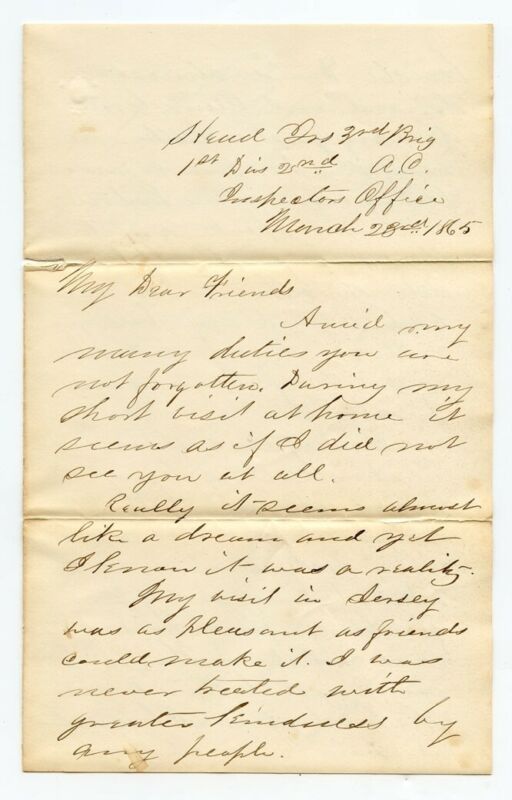 Head Qrs 3rd Brig
1st Div 2nd A.C.
Inspectors Office
March 23rd 1865
My Dear Friends
Amid my
many duties you are
not forgotten. During my
short visit at home it
seems as if I did not
see you at all.
Really it seems almost
like a dream and yet
I know it was a reality.
My visit in Jersey
was as pleasant as friends
could make it. I was
never treated with
greater kindness by
any people.